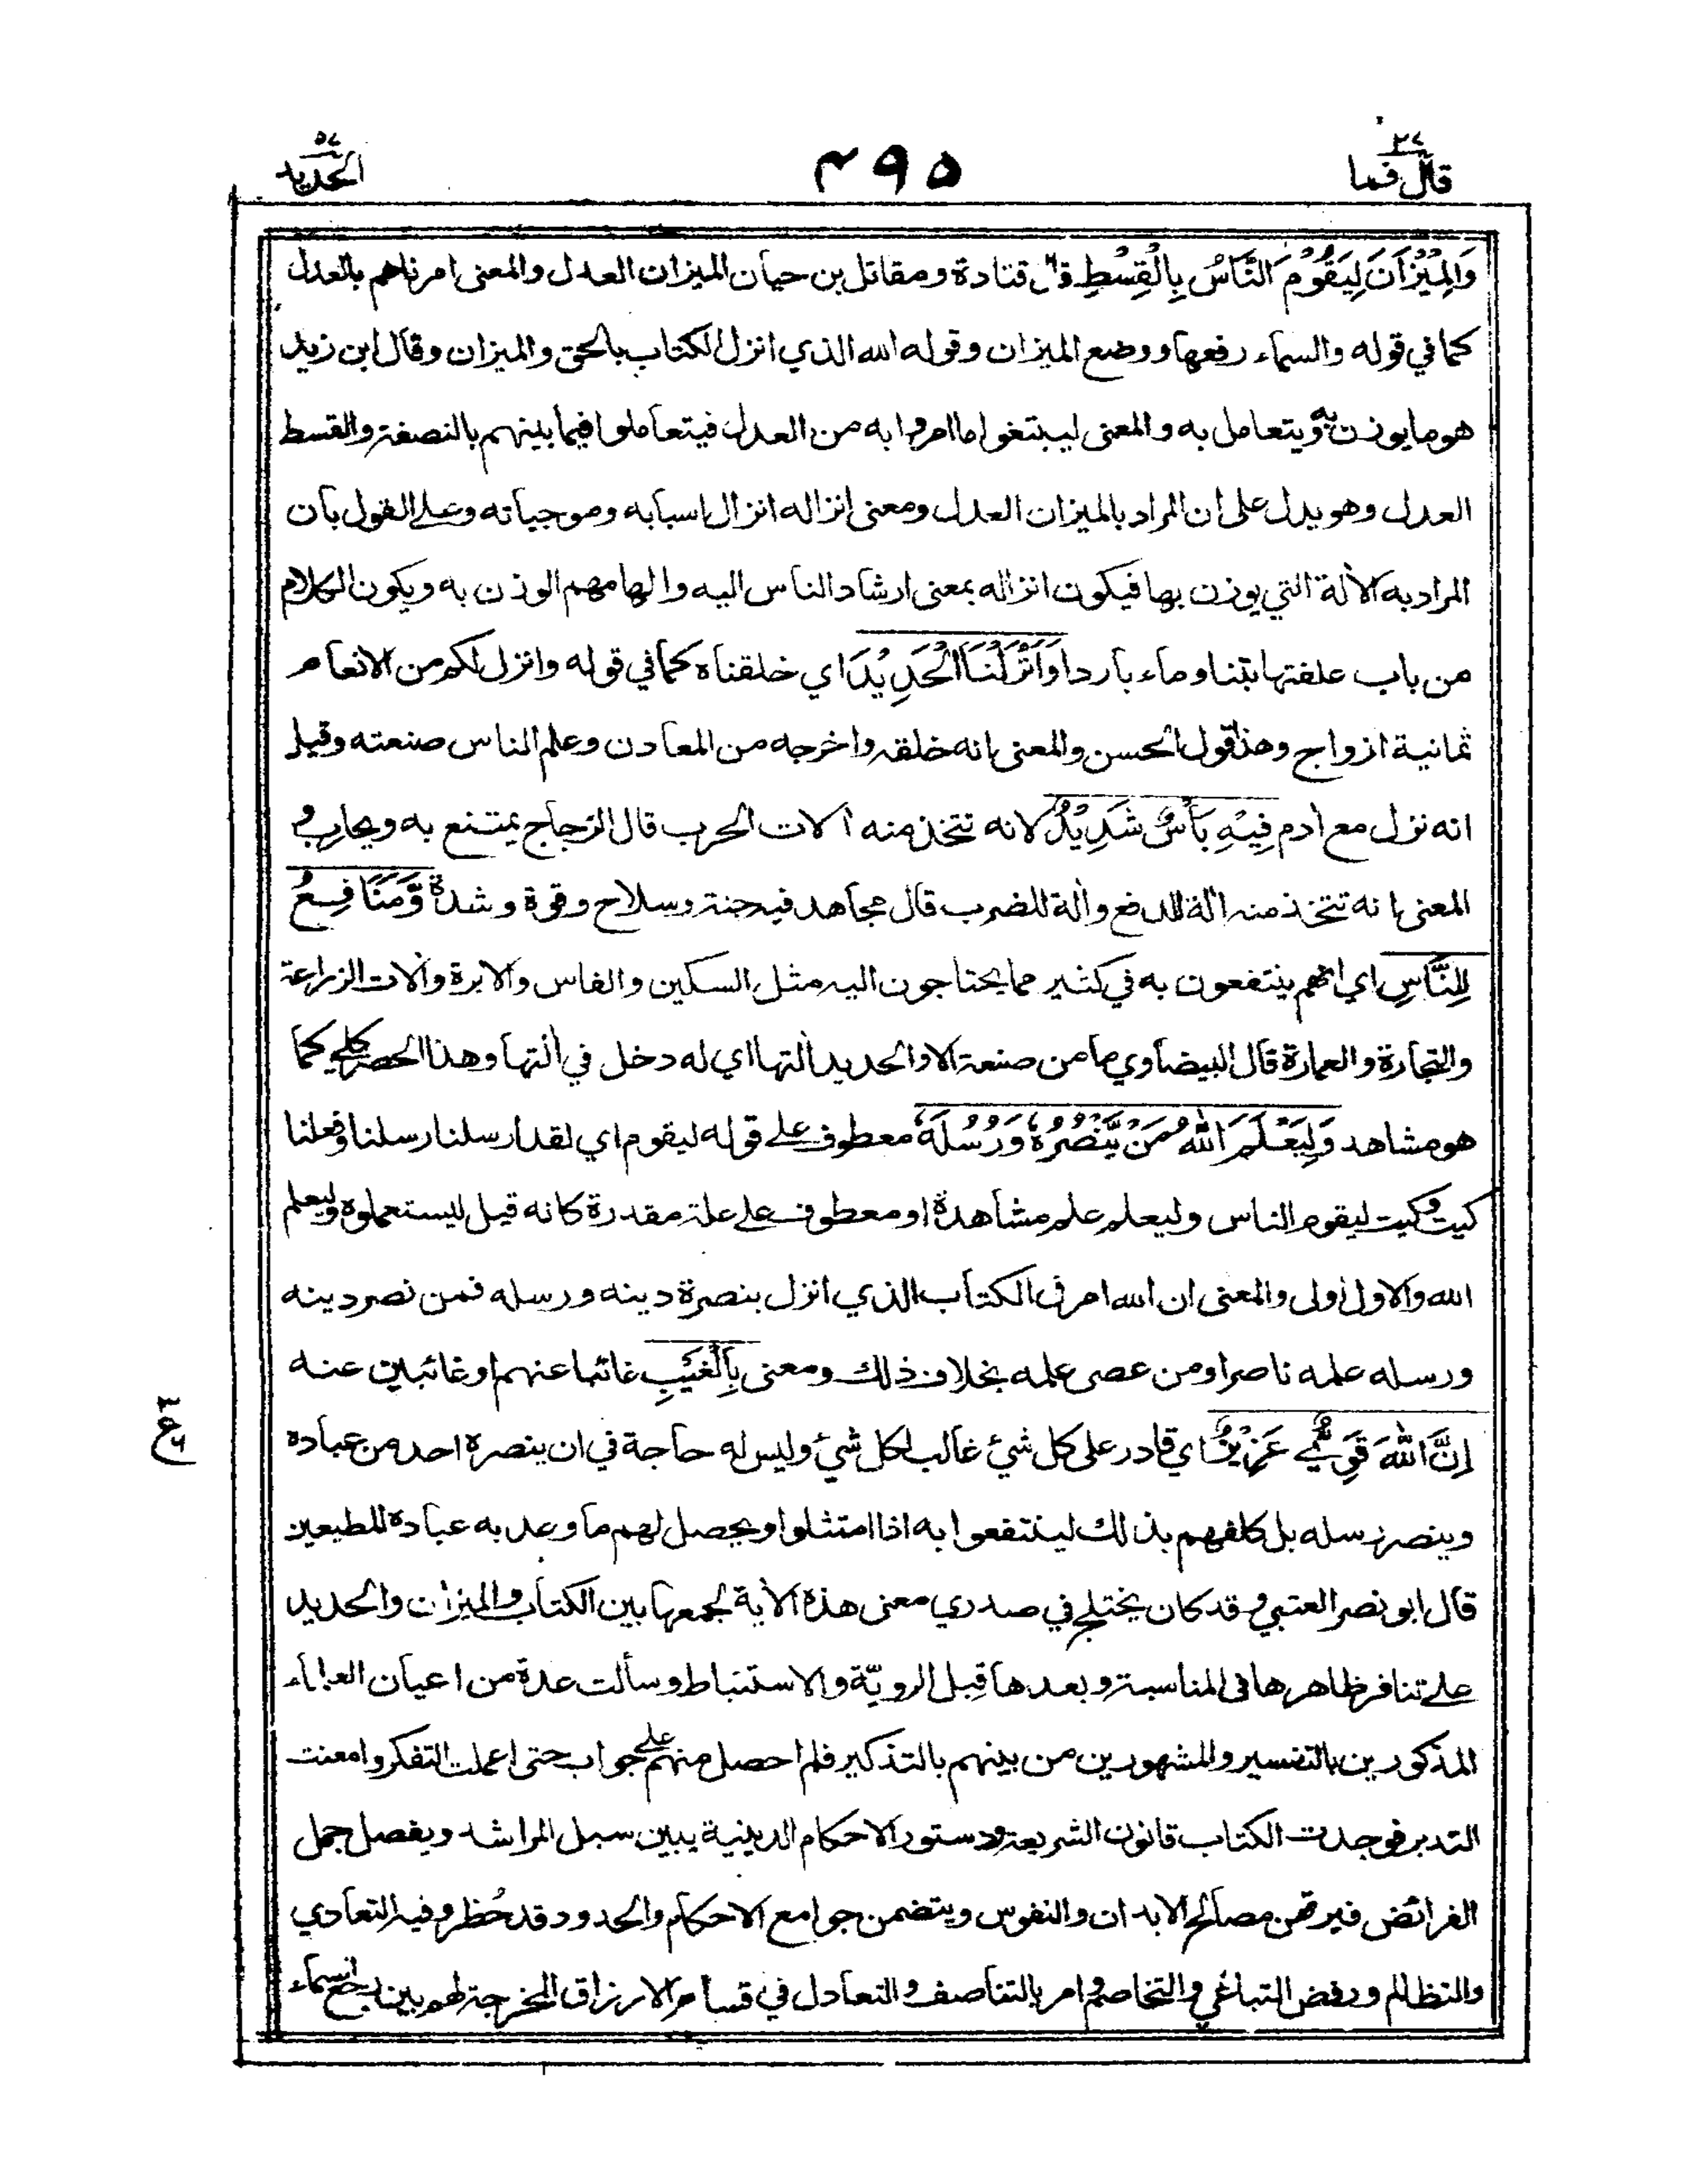 قال فما ٢٧
٤٩٥
الحديد ٥٧
وَالْمِيْزَانَ لِيَقُوْمَ النَّاسُ بِالْقِسْطِ قال قتادة ومقاتل بن حيان الميزان العدل والمعنى امرناهم بالعدل
كما في قوله والسماء رفعها ووضع الميزان وقوله الله الذي انزل الكتاب بالحق والميزان وقال ابن زيد
هو ما يوزن به ويتعامل به والمعنى ليبتغوا ما امروا به من العدل فيتعاملوا فيما بينهم بالنصفة والقسط
العدل وهو يدل على ان المراد بالميزان العدل ومعنى انزاله انزال اسبابه وموجباته وعلى القول بأن
المراد به الألة التي يوزن بها فيكون انزاله بمعنى ارشاد الناس اليه والهامهم الوزن به ويكون الكلام
من باب علفتها تبنا وماء باردا وَاَنْزَلْنَا الْحَدِيْدَ اي خلقناه كما في قوله وانزل لكم من الانعام
ثمانية ازواج وهذا قول الحسن والمعنى انه خلقه واخرجه من المعادن وعلم الناس صنعته وقيل
انه نزل مع أدم فِيْهِ بَأْسٌ شَدِيْدٌ لانه تتخذ منه آلات الحرب قال الزجاج يمتنع به ويحارب و
المعنى انه تتخذ منه ألة للدفع وألة للضرب قال مجاهد فيه جنة وسلاح وقوة وشدة وَّمَنَافِعُ
لِلنَّاسِ اي انهم ينتفعون به في كثير مما يحتاجون اليه مثل السكين والفاس والابرة وألات الزراعة
والتجارة والعمارة قال البيضاوي ما من صنعة الا والحديد ألتها اي له دخل في ألتها وهذا الحصر كلي كما
هو مشاهد وَلِيَعْلَمَ اللّٰهُ مَنْ يَّنْصُرُهٗ وَرُسُلَهٗ معطوف على قوله ليقوم اي لقد ارسلنا رسلنا وفعلنا
كيت وكيت ليقوم الناس وليعلم علم مشاهدة او معطوف على علة مقدرة كانه قيل ليستعملوه وليعلم
الله والاول اولى والمعنى ان الله امر في الكتاب الذي انزل بنصرة دينه ورسله فمن نصر دينه
ورسله علمه ناصرا ومن عصى علمه بخلاف ذلك ومعنى بِالْغَيْبِ غائبا عنهم او غائبين عنه
اِنَّ اللّٰهَ قَوِيٌّ عَزِيْزٌ اي قادر على كل شيء غالب لكل شيء وليس له حاجة في ان ينصره احد من عباده
وينصر رسله بل كلفهم بذلك لينتفعوا به اذا امتثلوا ويحصل لهم ما وعد به عباده المطيعين
قال ابو نصر العتبي وقد كان يختلج في صدري معنى هذه الأية لجمعها بين الكتاب والميزان والحديد
على تنافر ظاهرها في المناسبة وبعدها قبل الرويّة والاستنباط وسألت عدة من اعيان العلماء
المذكورين بالتفسير والمشهورين من بينهم بالتذكير فلم احصل منهم على جواب حتى اعملت التفكر وامعنت
التدبر فوجدت الكتاب قانون الشريعة ودستور الاحكام الدينية يبين سبل المراشد ويفصل جمل
الفرائض فيرتهن مصالح الابدان والنفوس ويتضمن جوامع الاحكام والحدود قد حُظر وفيه التعادي
والتظالم ورفض التباغي والتخاصم وامر بالتناصف والتعادل في قسام الارزاق المخرجة لهم بين رجع السماء